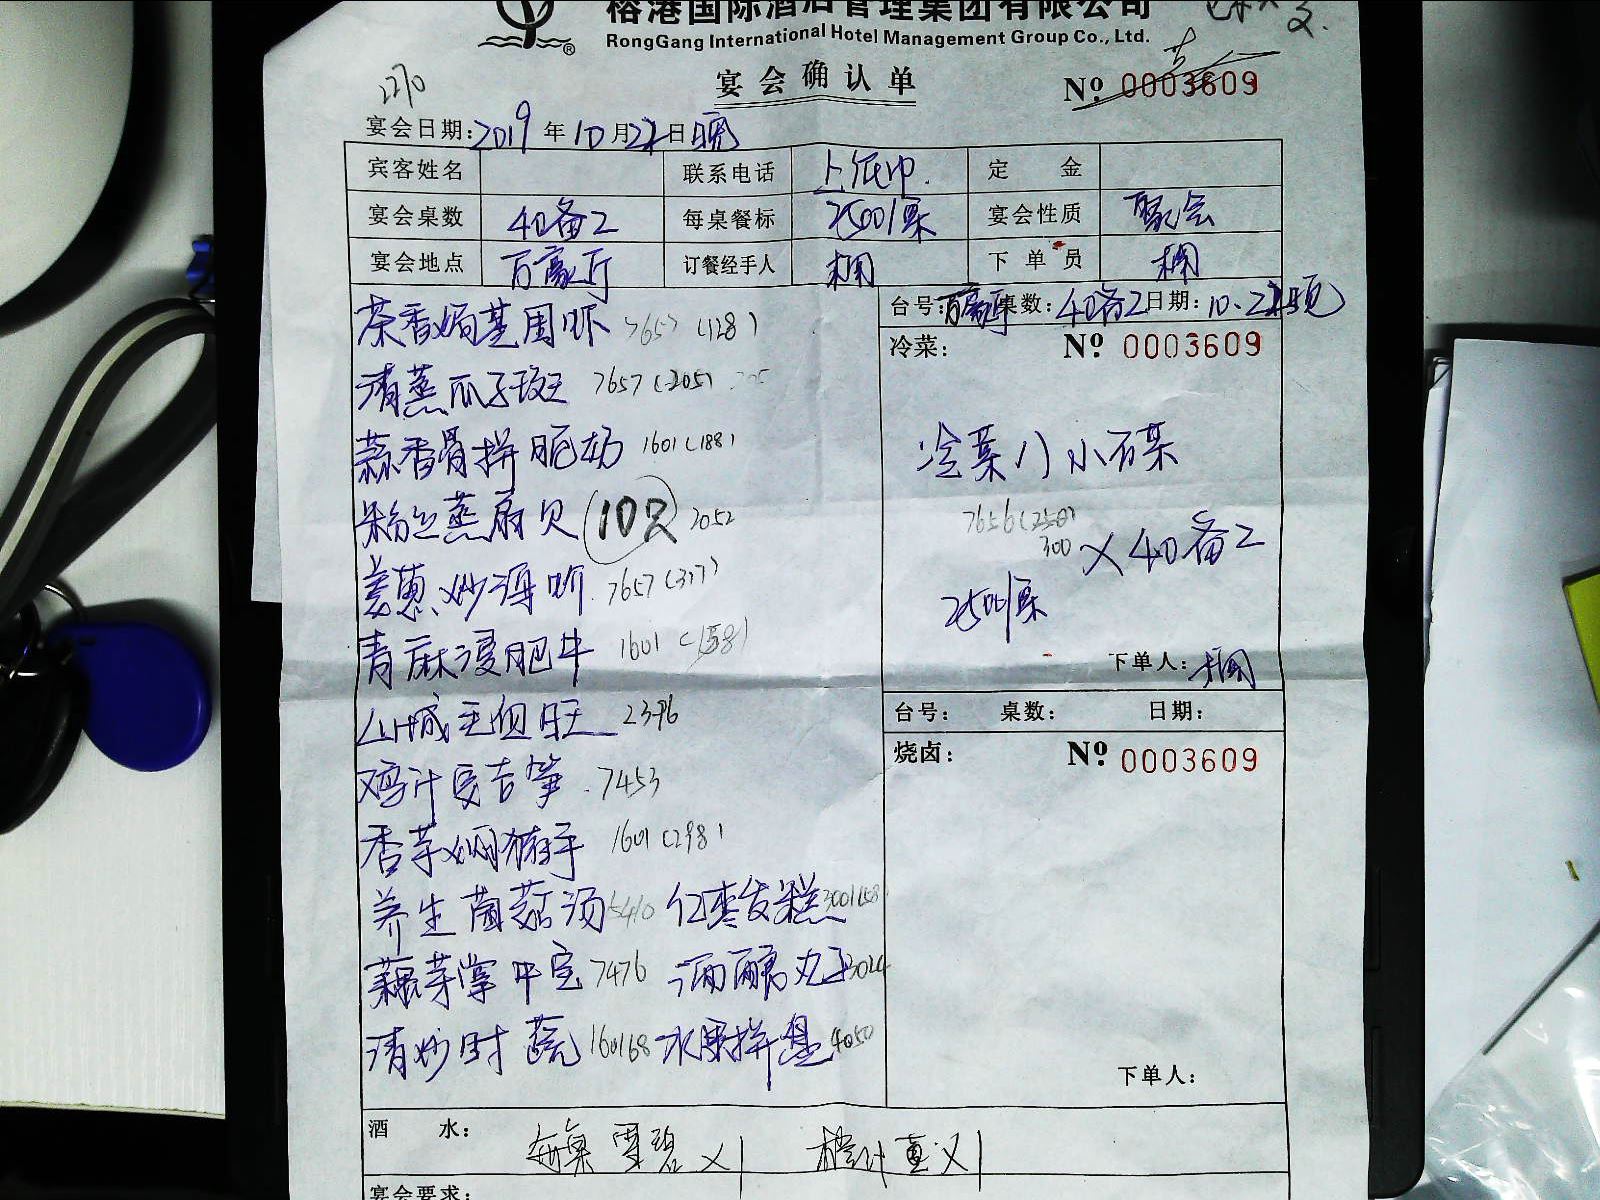 榕港国际酒店管理集团有限公司
RongGang International Hotel Management Group Co., Ltd.
®
2270
宴会确认单
Nº 0003609
宴会日期: 2019 年 10 月 22 日 晚
宾客姓名 联系电话 定金
宴会桌数 40备2 每桌餐标 2500/桌 宴会性质 聚会
宴会地点 百豪厅 订餐经手人 下单员
台号: 百豪厅 桌数: 40备2 日期: 10.22晚
冷菜: Nº 0003609
冷菜八小碟
7656(258)
300 × 40备2
2500/桌
下单人:
台号: 桌数: 日期:
烧卤: Nº 0003609
下单人:
茶香焗基围虾 7657 (128)
清蒸瓜子斑 7657 (205)
蒜香骨拼脆奶 1601 (188)
粉丝蒸扇贝 (10只) 2052
姜葱炒海蚧 7657 (317)
青麻浸肥牛 1601 (158)
山城毛血旺 2376
鸡汁安吉笋 7453
香芋焖猪手 1601 (298)
养生菌菇汤 5410 红枣发糕 3001(58)
藕芽掌中宝 7476 酒酿丸子 3024
清炒时蔬 160168 水果拼盘 4050
酒水: 每桌雪碧×1 橙汁壹×1
宴会要求: